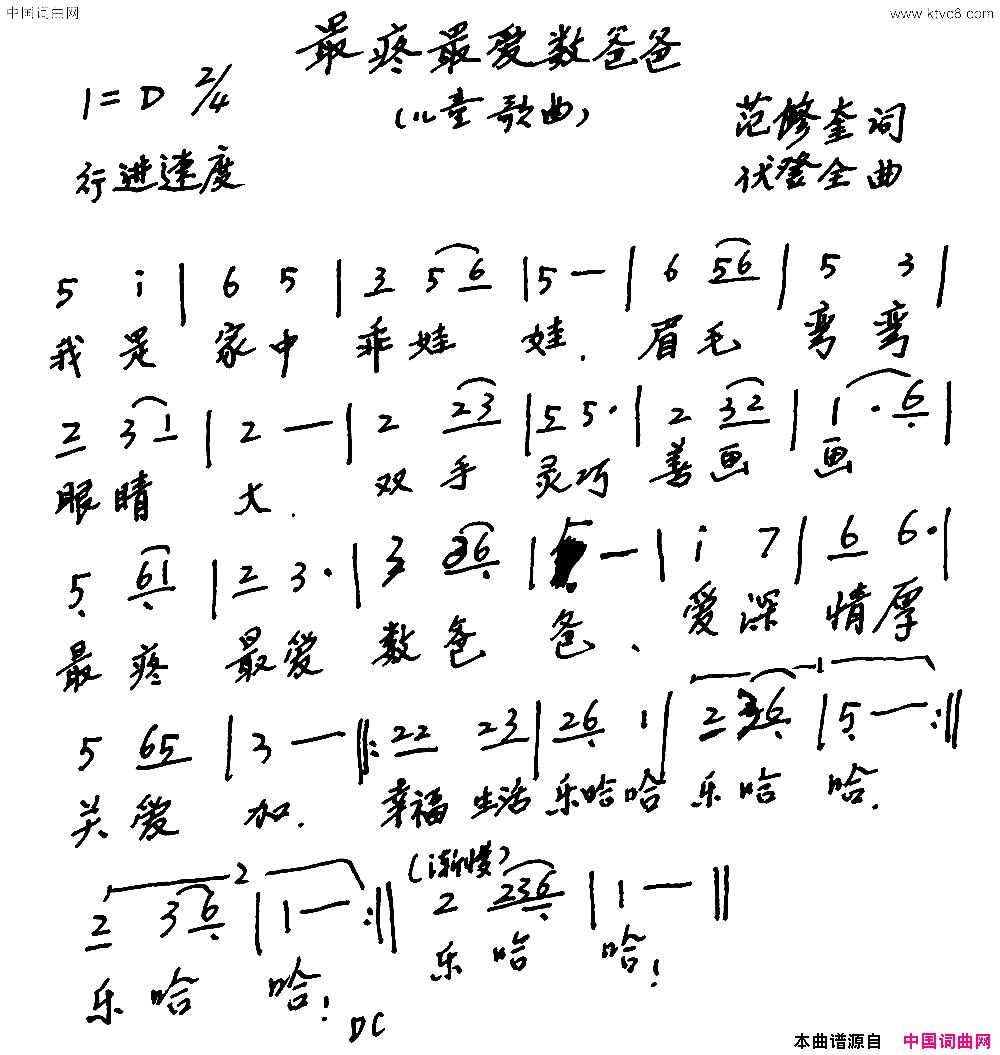 中国词曲网 www.ktvc8.com
最疼最爱数爸爸
1=D 2/4 （儿童歌曲） 范修奎词
行进速度 伏登全曲
5 i | 6 5 | 3 5 6 | 5 — | 6 56 | 5 3 |
我是家中乖娃娃．眉毛弯弯
2 3 1 | 2 — | 2 23 | 5 5· | 2 32 | 1 · 6 |
眼睛大．双手灵巧善画画
5 61 | 2 3· | 3 36 | 5 — | i 7 | 6 6· |
最疼最爱数爸爸、爱深情厚
1
5 65 | 3 — ‖: 22 23 | 26 1 | 2 36 | 5 — :‖
关爱加．幸福生活乐哈哈乐哈哈．
2 （渐慢）
2 3 6 | 1 — :‖ 2 236 | 1 — ‖
乐哈哈！乐哈哈！
DC
本曲谱源自 中国词曲网